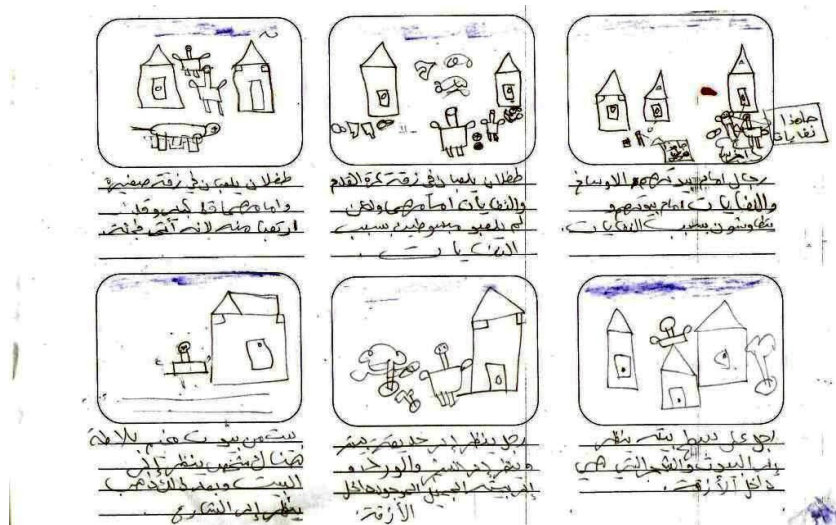 ماهذا
نفايات
رجال امام بيوتهم الاوساخ
والنفايات امام بيوتهم و
بسبب النفايات.
طفلان يلعبان في زقة كرة القدم
والنفايات امامهما ولكن
لم يلعبو مبسوطين بسبب
النفايات.
طفلان يلعبان في زقة صغيرة
وامامهما كلب وقد
منه لانه أتى
رجل على سطح بيته ينظر
إلى البيوت والشجر التي هي
داخل الأزقة.
رجل ينظر إلى حديقة بيته
وينظر إلى الشجر والورد و
إلى بيته الجميل الموجود داخل
الأزقة.
بيت من بيوت مخيم بلاطة
هناك شخص ينظر إلى
البيت وبعد ذلك ذهب
ينظر إلى الشارع.